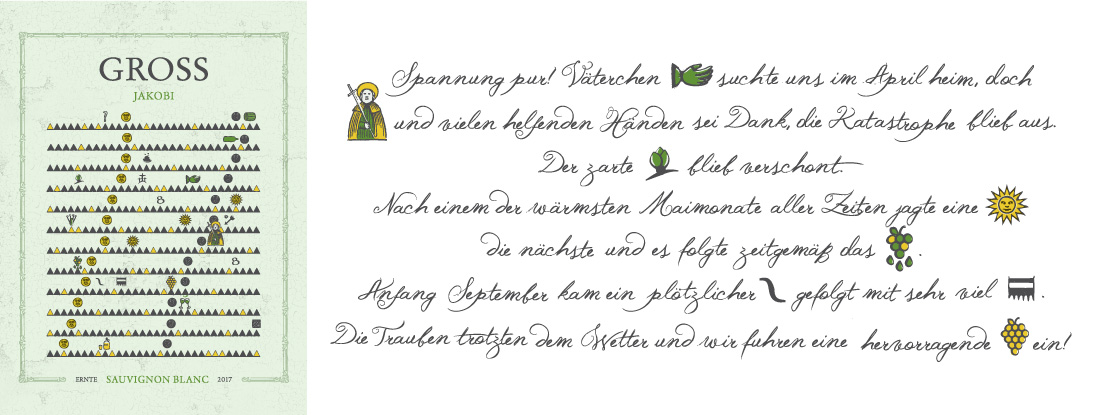 GROSS
JAKOBI
ERNTE SAUVIGNON BLANC 2017
Spannung pur! Väterchen suchte uns im April heim, doch
und vielen helfenden Händen sei Dank, die Katastrophe blieb aus.
Der zarte blieb verschont.
Nach einem der wärmsten Maimonate aller Zeiten jagte eine
die nächste und es folgte zeitgemäß das .
Anfang September kam ein plötzlicher gefolgt mit sehr viel .
Die Trauben trotzten dem Wetter und wir fuhren eine hervorragende ein!